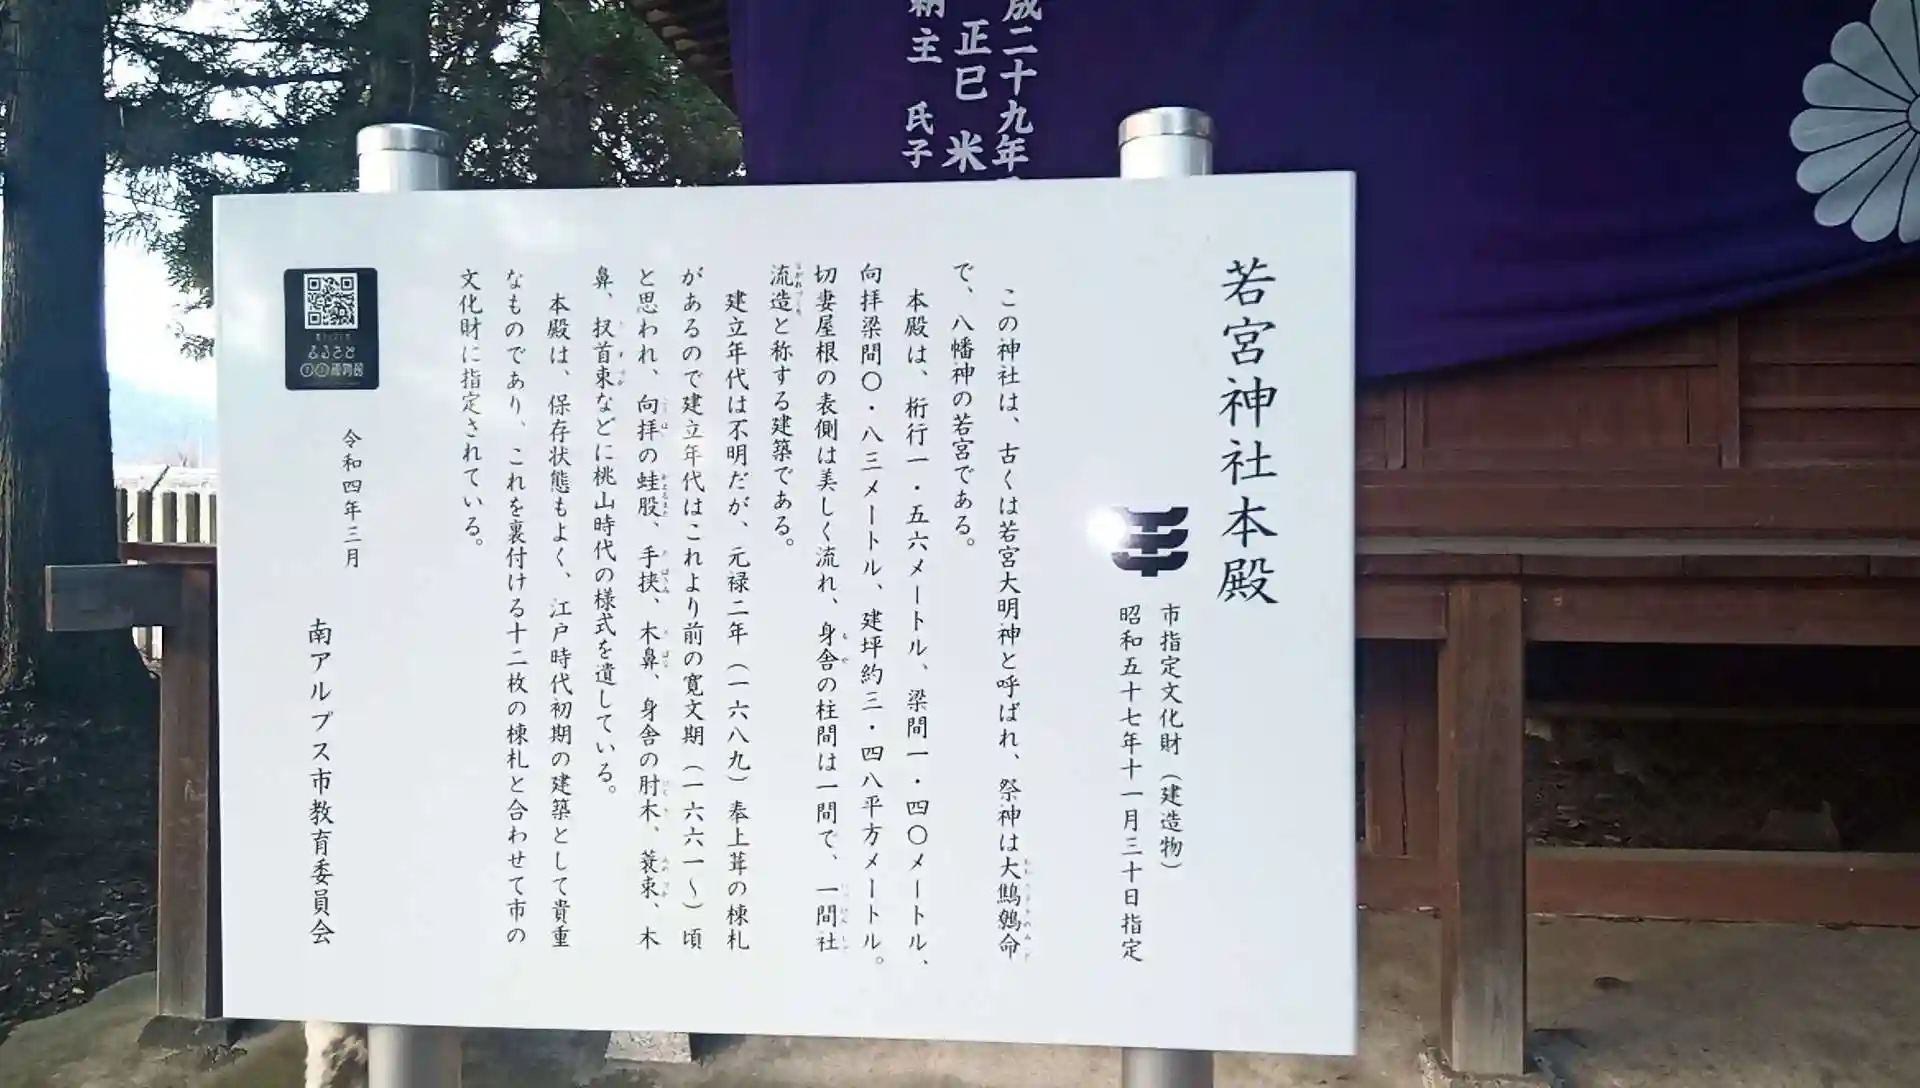 若宮神社本殿
市指定文化財（建造物）
昭和五十七年十一月三十日指定
この神社は、古くは若宮大明神と呼ばれ、祭神は大鷦鷯命
で、八幡神の若宮である。
本殿は、桁行一・五六メートル、梁間一・四〇メートル、
向拝梁間〇・八三メートル、建坪約三・四八平方メートル。
切妻屋根の表側は美しく流れ、身舎の柱間は一間で、一間社
流造と称する建築である。
建立年代は不明だが、元禄二年（一六八九）奉上葺の棟札
があるので建立年代はこれより前の寛文期（一六六一～）頃
と思われ、向拝の蛙股、手挟、木鼻、身舎の肘木、蓑束、木
鼻、扠首束などに桃山時代の様式を遺している。
本殿は、保存状態もよく、江戸時代初期の建築として貴重
なものであり、これを裏付ける十二枚の棟札と合わせて市の
文化財に指定されている。
令和四年三月
南アルプス市教育委員会
ふるさと
〇〇博物館
成二十九年
正巳 米
納主 氏子